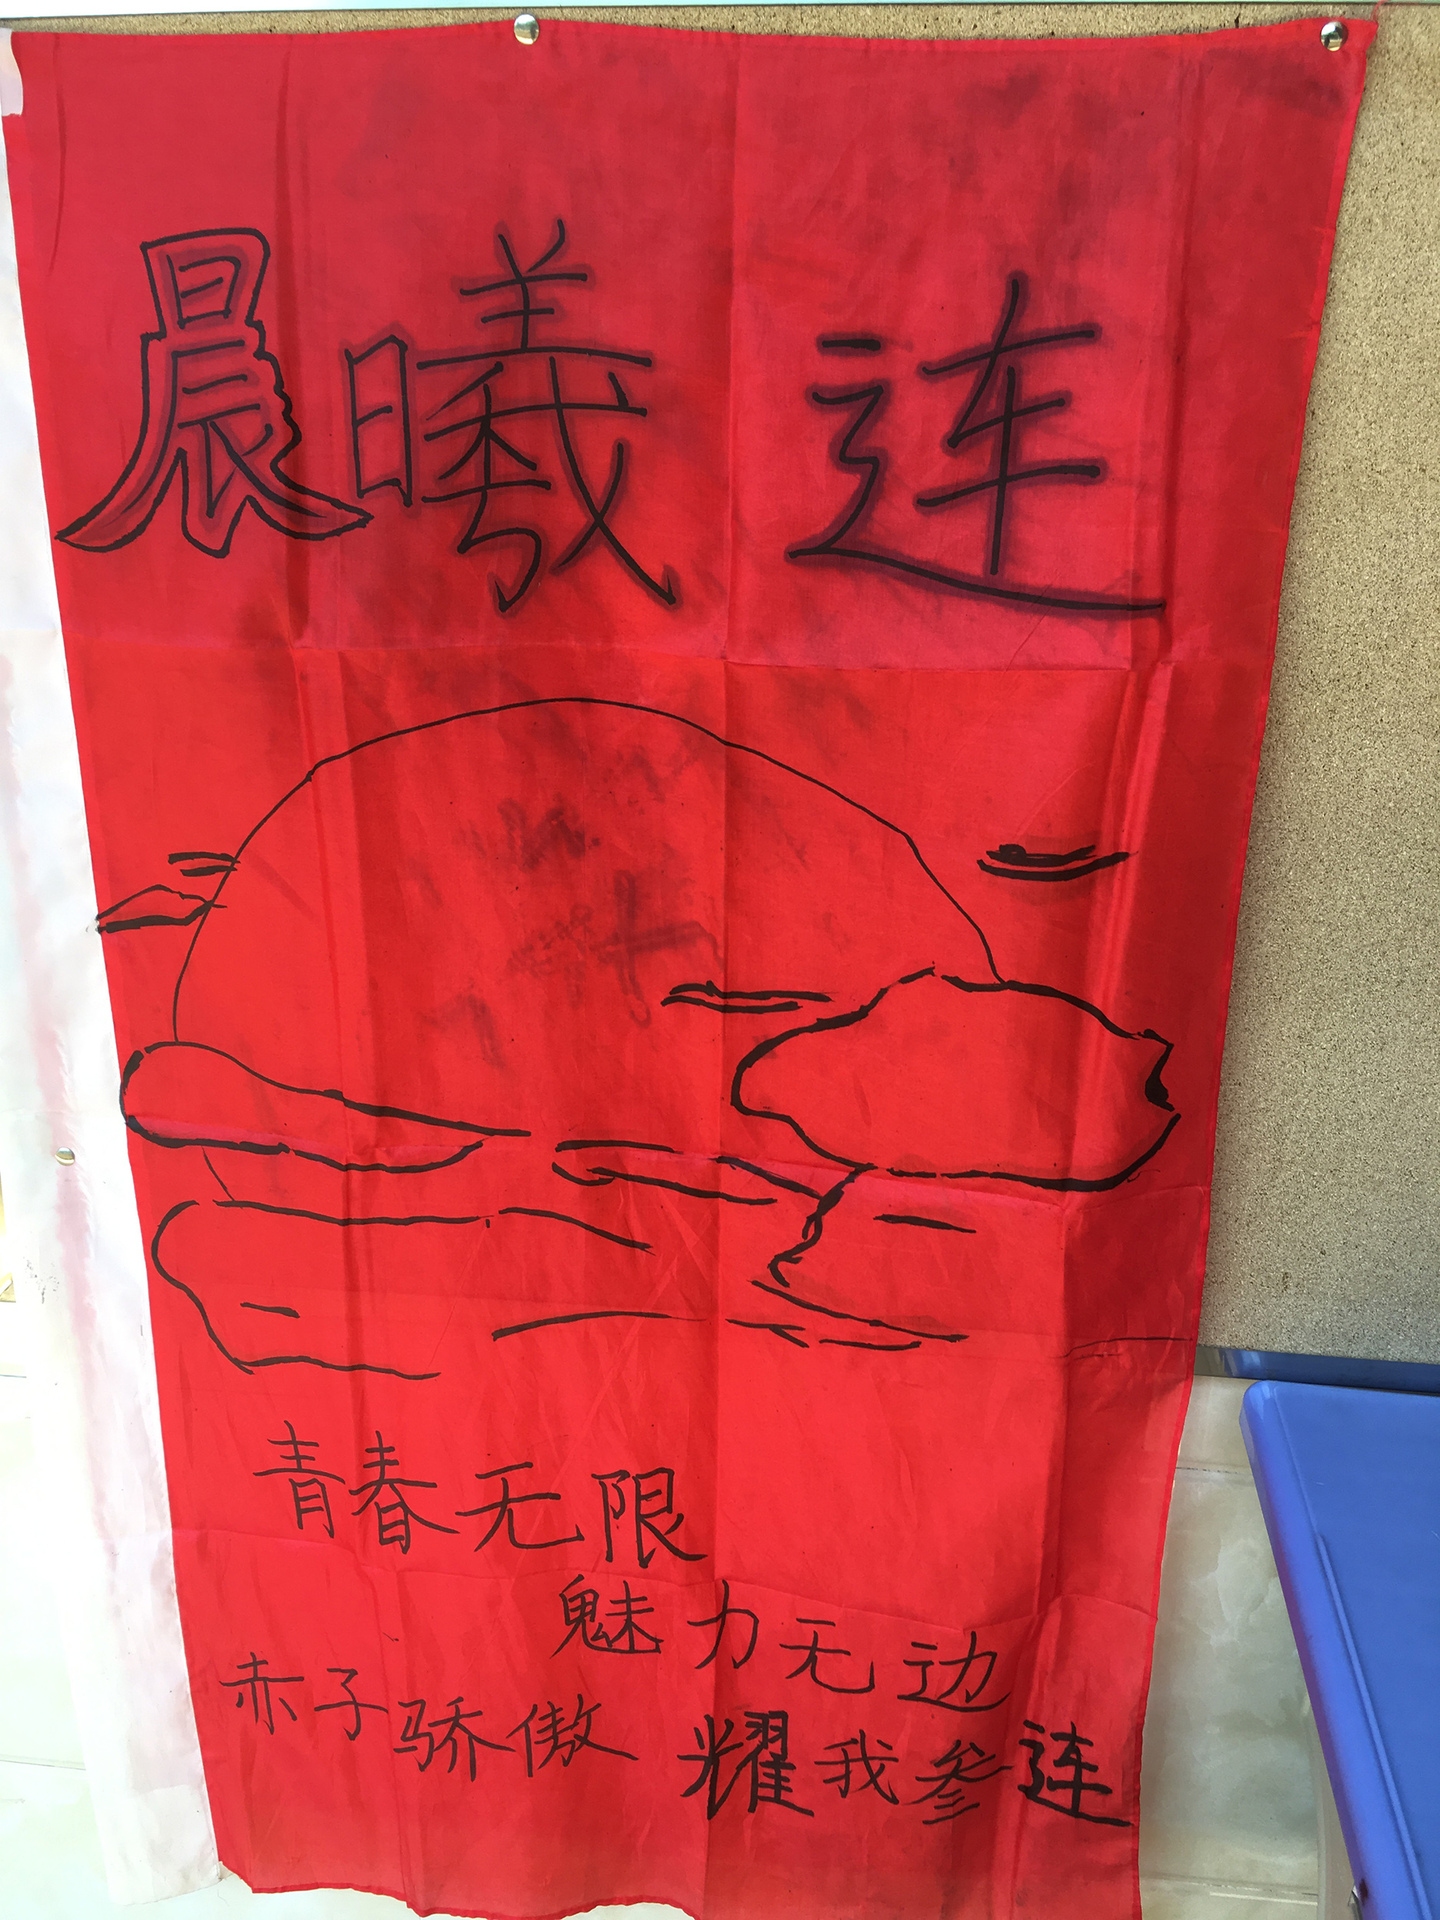 晨曦 连
青春无限
魅力无边
赤子骄傲
耀我叁连